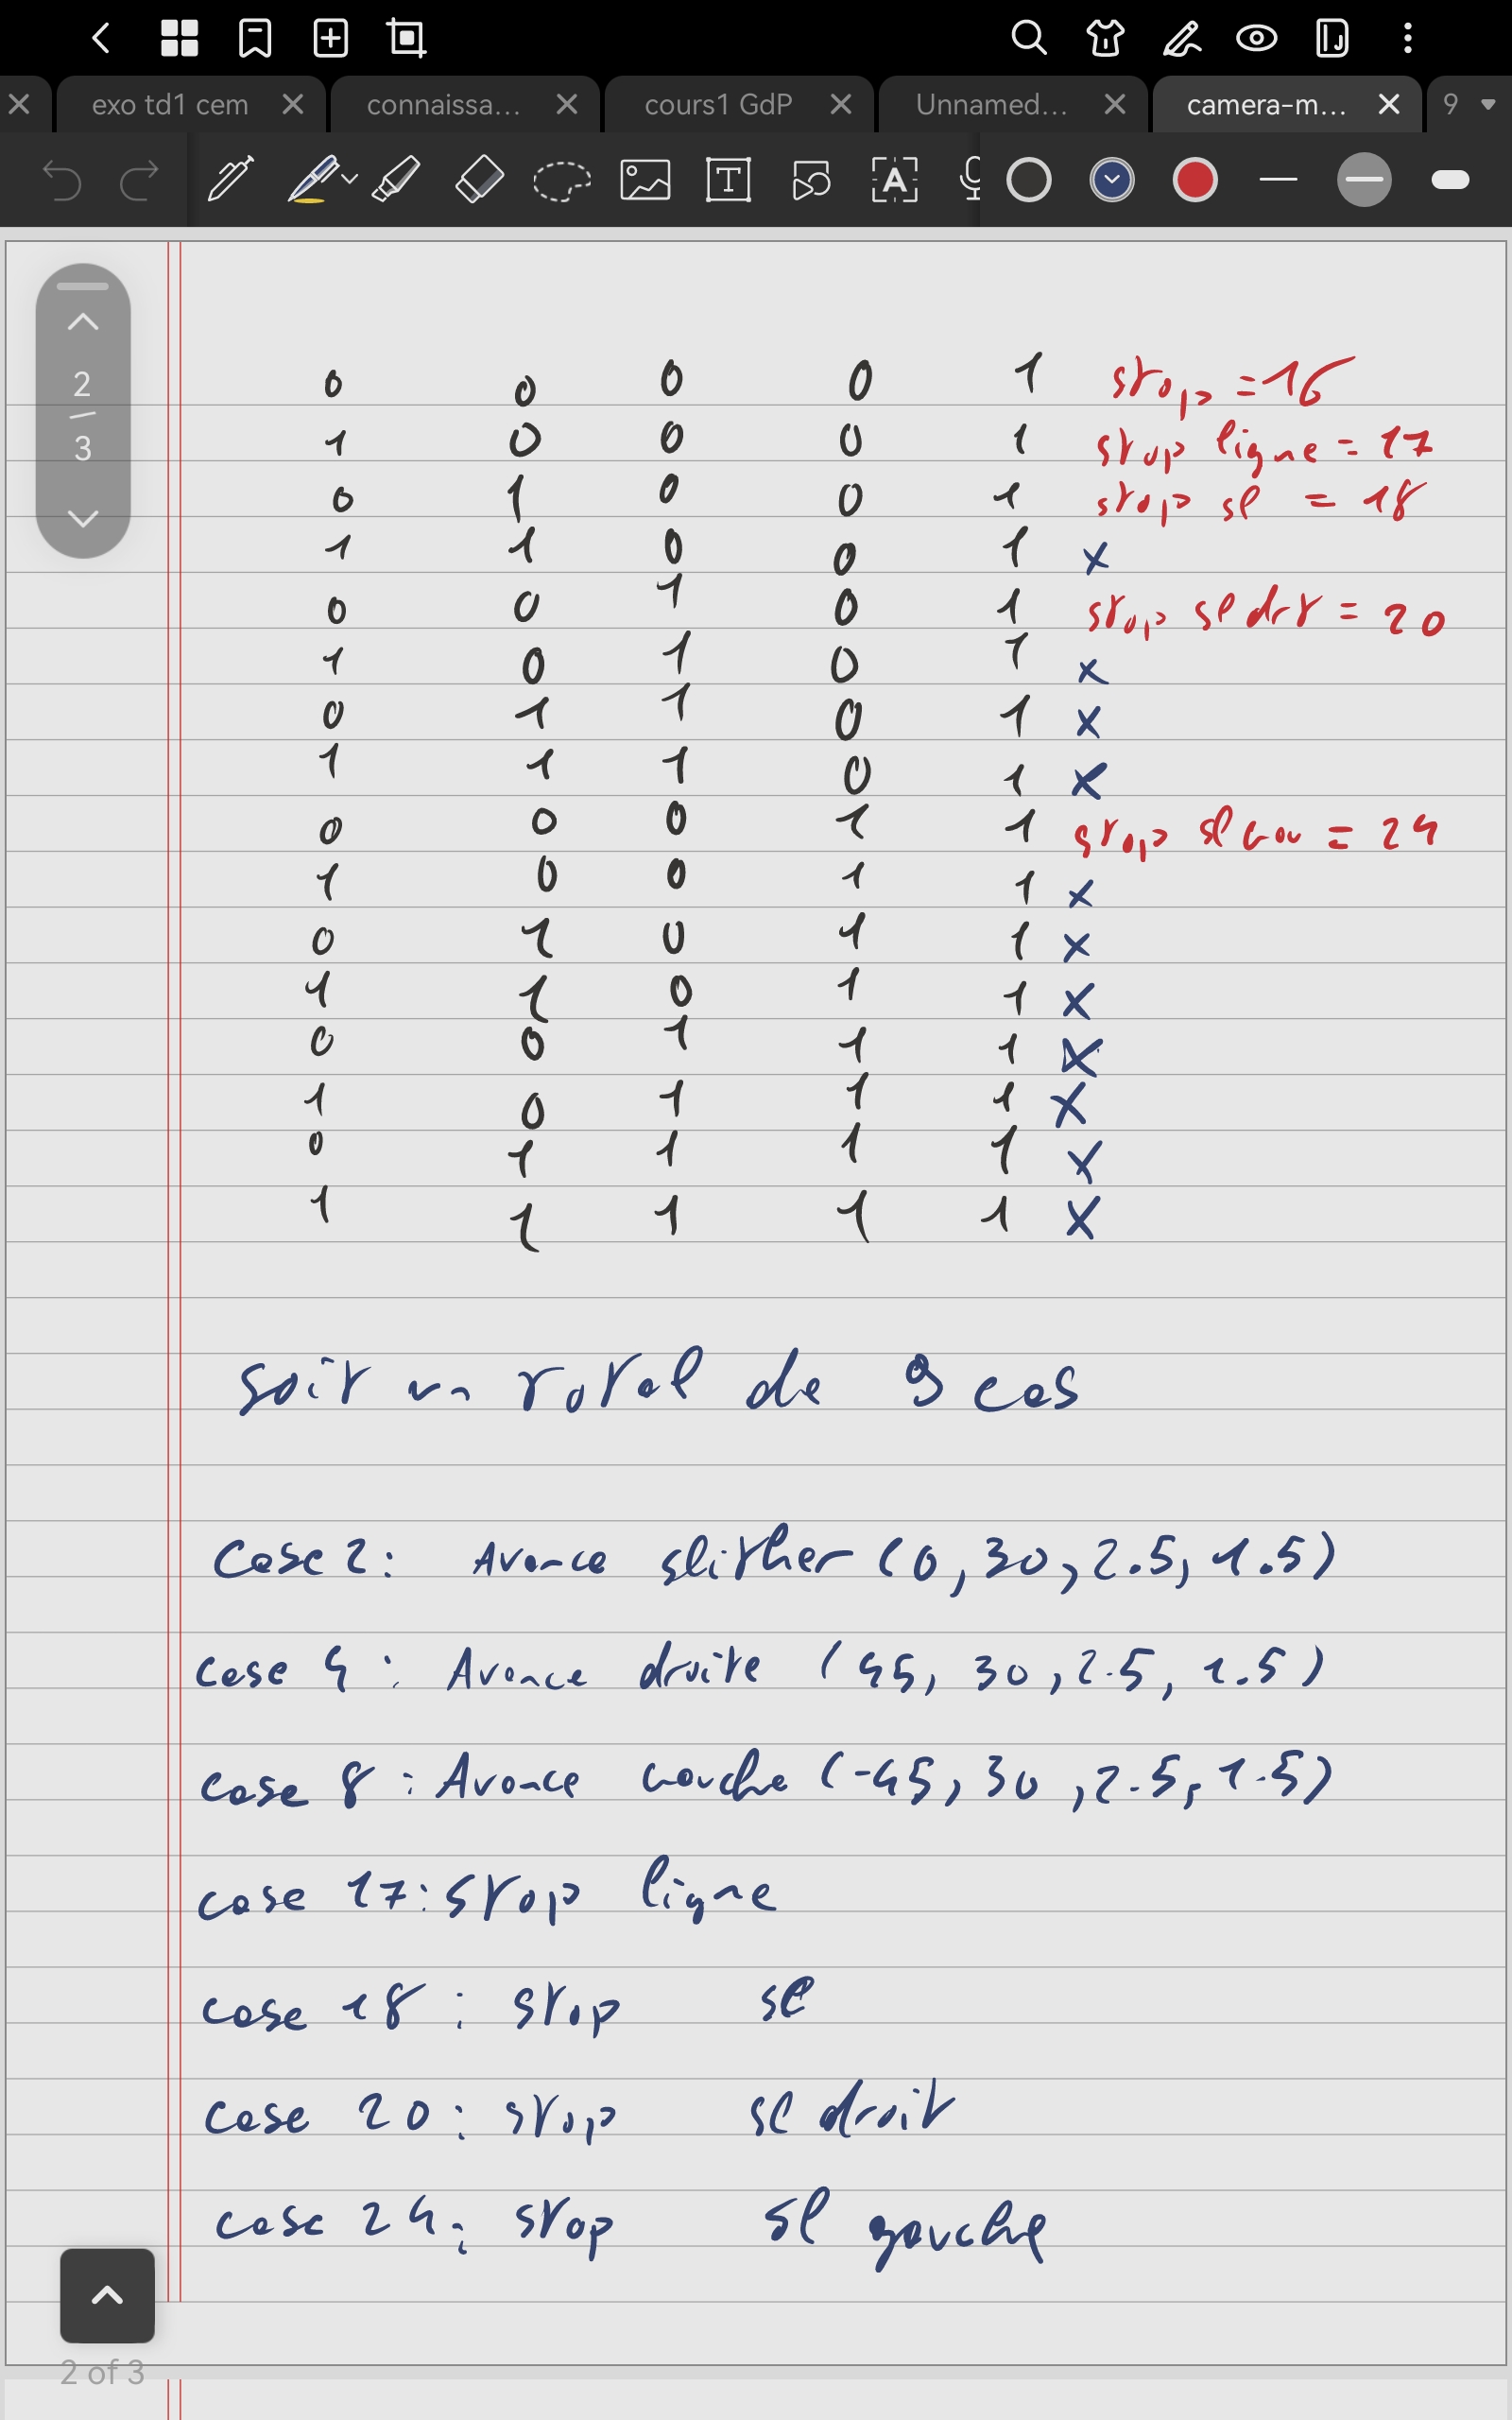 exo td1 cem connaissa... cours1 GdP Unnamed... camera-m... 9
2
3
0 0 0 0 1 stop = 16
1 0 0 0 1 stop ligne = 17
0 1 0 0 1 stop sl = 18
1 1 0 0 1 x
0 0 1 0 1 stop sl drt = 20
1 0 1 0 1 x
0 1 1 0 1 x
1 1 1 0 1 x
0 0 0 1 1 stop sl gau = 24
1 0 0 1 1 x
0 1 0 1 1 x
1 1 0 1 1 x
0 0 1 1 1 x
1 0 1 1 1 x
0 1 1 1 1 x
1 1 1 1 1 x
soit un total de 9 cas
case 2 : Avance slither (0, 30, 2.5, 1.5)
case 4 : Avance droite (45, 30, 2.5, 1.5)
case 8 : Avance gauche (-45, 30, 2.5, 1.5)
case 17 : stop ligne
case 18 : stop sl
case 20 : stop sl droit
case 24 : stop sl gauche
2 of 3